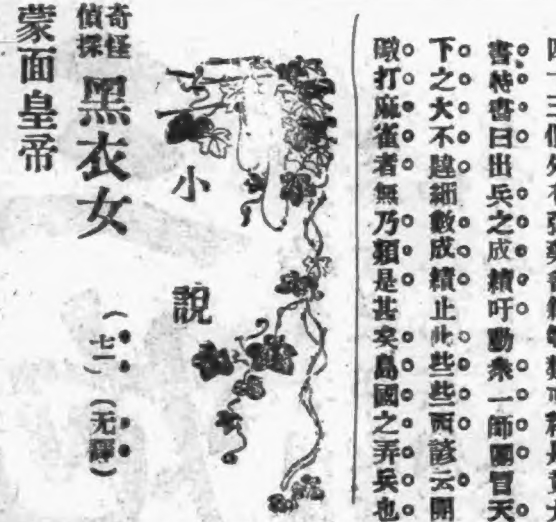 書特書曰出兵之成績吁動衆一師團冒天
下之大不韙細數成績止此些些西諺云開
礮打麻雀者無乃類是甚矣島國之弄兵也
小說
奇怪
偵探
黑衣女 （七一）
蒙面皇帝